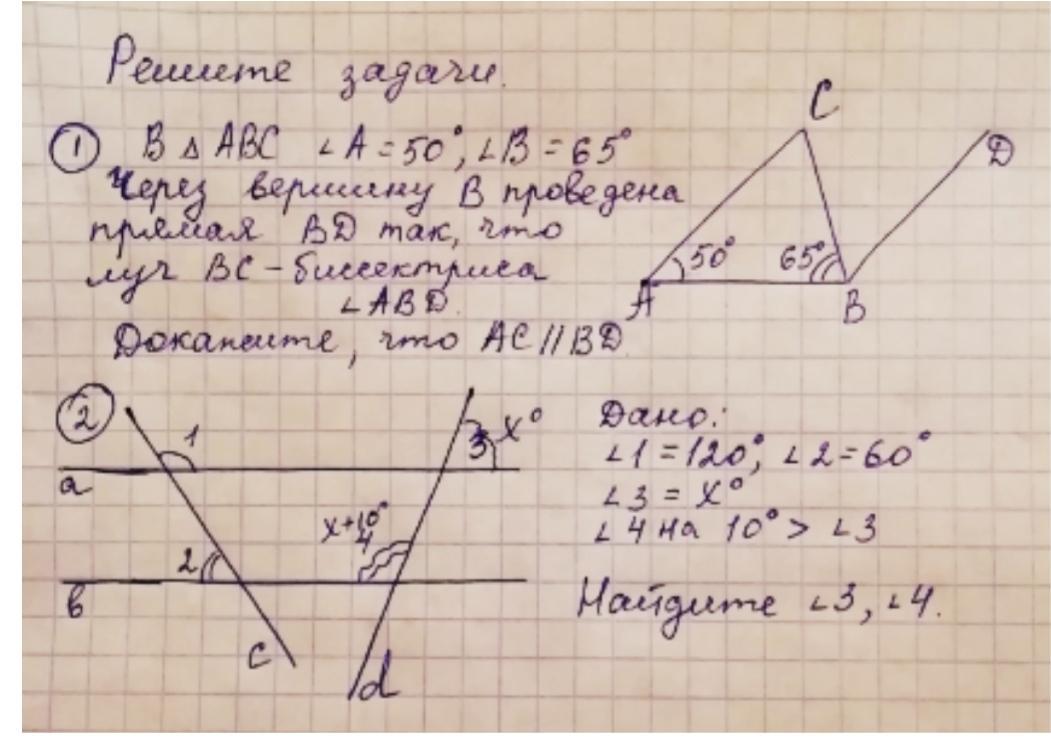 Решите задачи.
① В △ ABC ∠A = 50°, ∠B = 65°
Через вершину B проведена
прямая BD так, что
луч BC – биссектриса
∠ABD.
Докажите, что AC // BD
C
D
50°
65°
A
B
②
1
3
x°
a
x+10°
4
2
в
c
d
Дано:
∠1 = 120°, ∠2 = 60°
∠3 = x°
∠4 на 10° > ∠3
Найдите ∠3, ∠4.